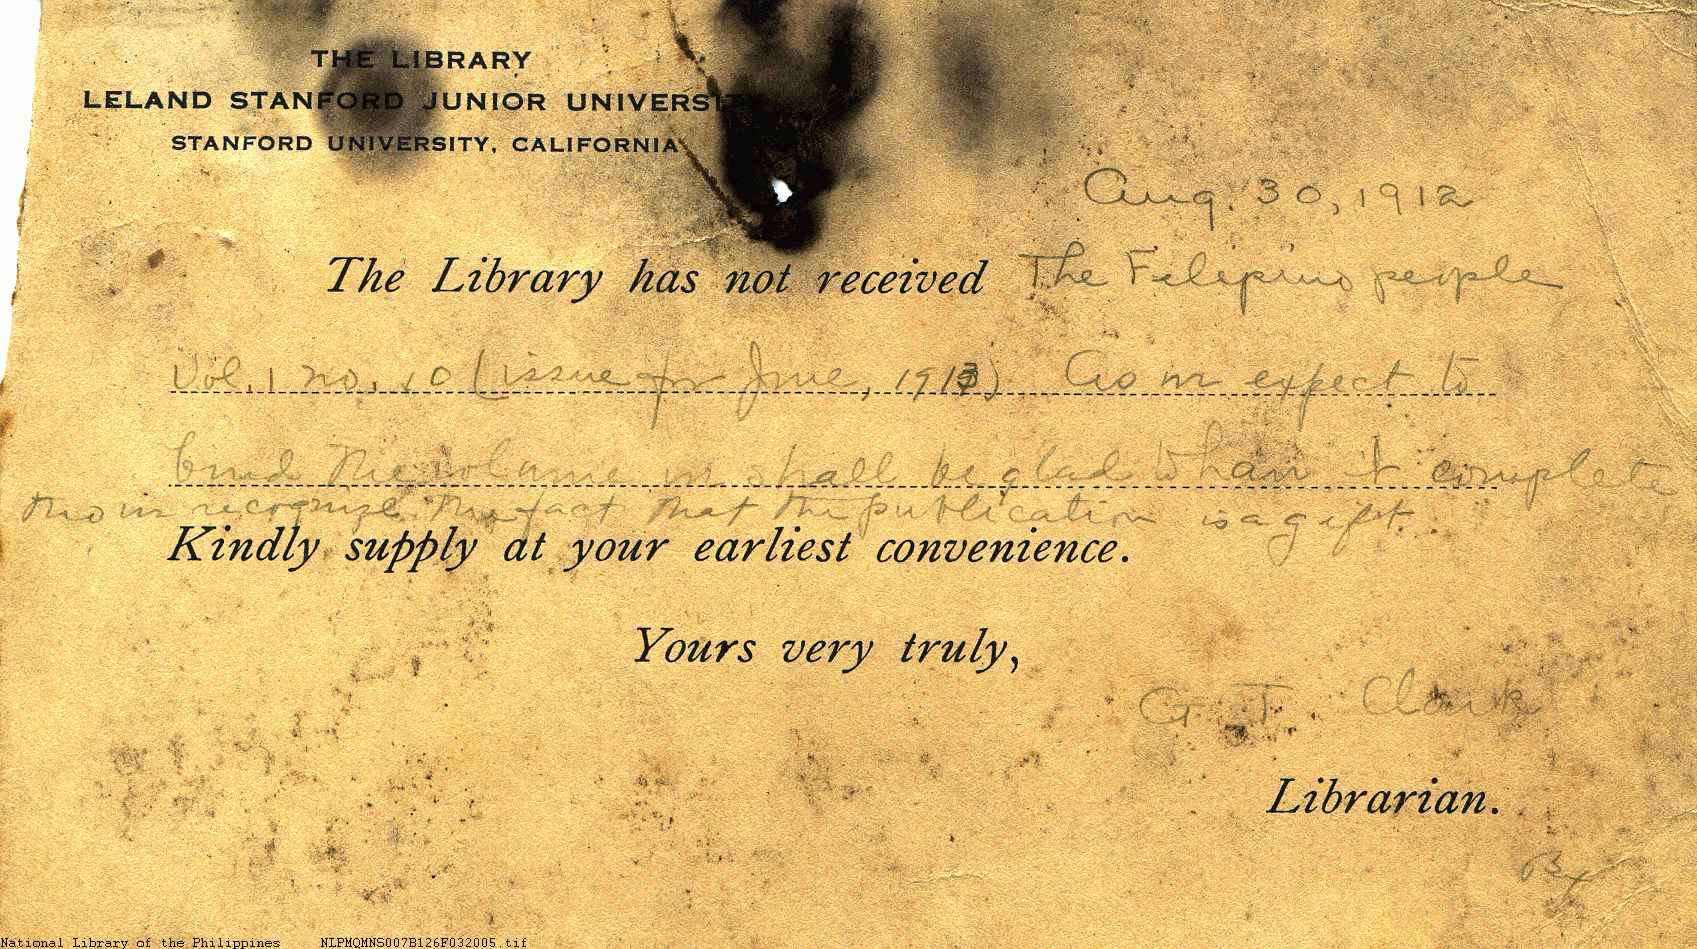 THE LIBRARY
LELAND STANFORD JUNIOR UNIVERSI
STANFORD UNIVERSITY, CALIFORNIA
Aug. 30, 1912
The Library has not received The Filipino people
Vol. 1 no. 10 (issue for June, 1913) As we expect to
bind the volume we shall be glad to have it complete
tho we recognize the fact that the publication is a gift.
Kindly supply at your earliest convenience.
Yours very truly,
G. T. Clark
Librarian.
By
National Library of the Philippines NLPMQMNS007B126F032005.tif